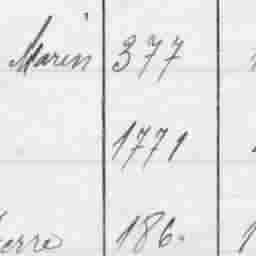 Marin 377
1771
ierre 186.